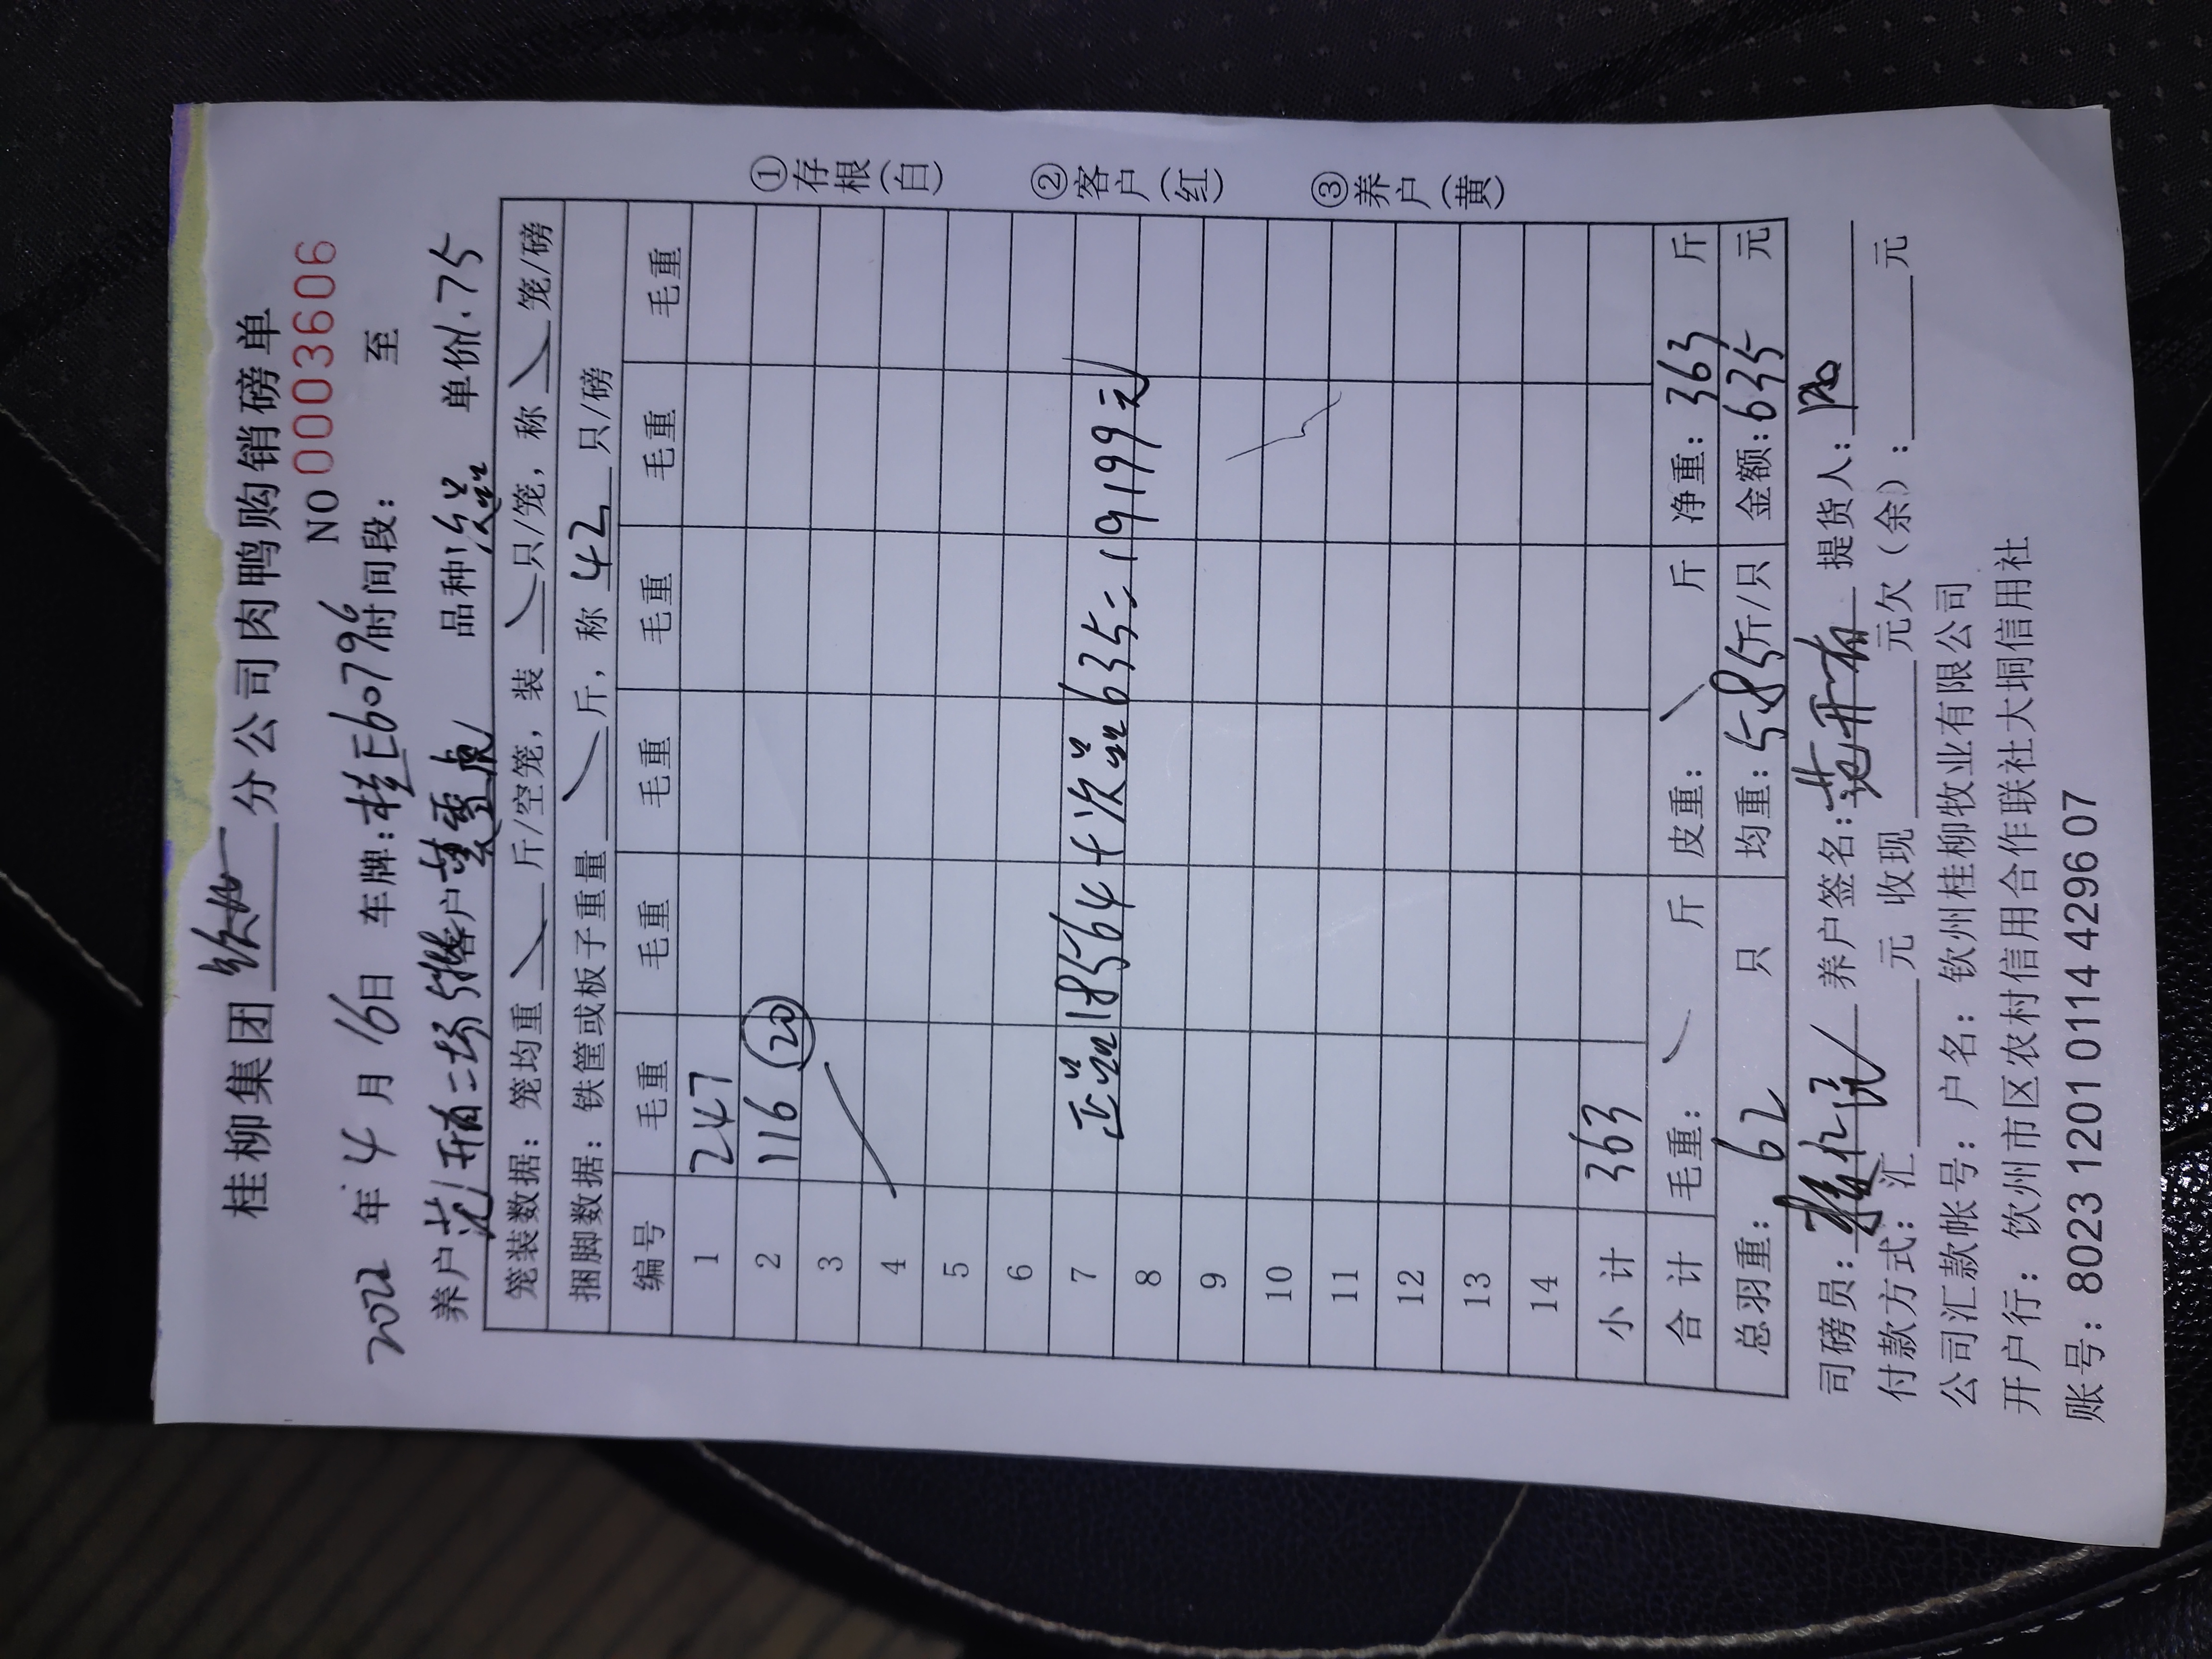 桂柳集团 分公司肉鸭购销磅单
NO 0003606
2022年4月16日 车牌:桂E60796 时间段: 至
养户 范开有二场 客户 品种 次品 单价1.75
笼装数据:笼均重 斤/空笼,装 只/笼,称 笼/磅
捆脚数据:铁筐或板子重量 斤,称 42 只/磅
编号 毛重 毛重 毛重 毛重 毛重 毛重
1 247
2 116 (20)
3
4
5
6
7
正品18564+次品635=19199元
8
9
10
11
12
13
14
小计 363
合计 毛重: 斤 皮重: 斤 净重:363 斤
总羽重:62 只 均重:5.85斤/只 金额:635 元
①存根(白)
②客户(红)
③养户(黄)
司磅员: 养户签名:范开有 提货人:
付款方式:汇 元 收现 元欠(余): 元
公司汇款帐号:户名:钦州桂柳牧业有限公司
开户行:饮州市区农村信用合作联社大垌信用社
账号:8023 1201 0114 4296 07